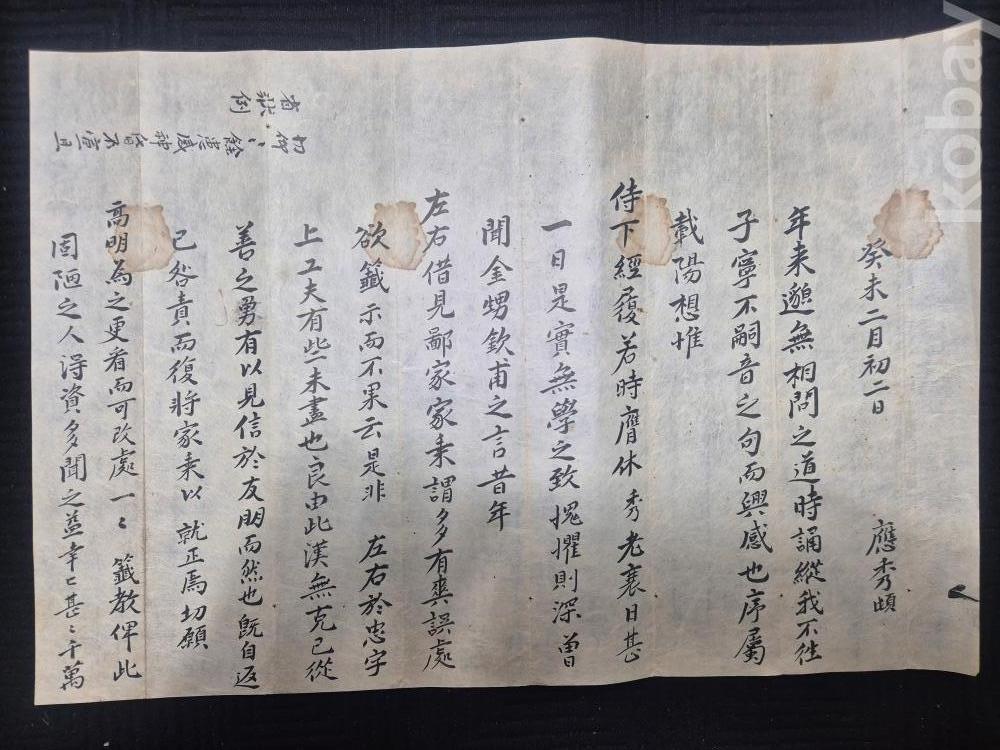 癸未二月初二日 應秀頓
年来邈無相問之道時誦縱我不往
子寧不嗣音之句而興感也序屬
載陽想惟
侍下經履若時膺休秀老衰日甚
一日是實無學之致愧懼則深曾
聞金甥欽甫之言昔年
左右借見鄙家家乗謂多有爽誤處
欲籤示而不果云是非 左右於忠字
上工夫有些未盡也良由此漢無克己從
善之勇有以見信於友朋而然也旣自返
己咎責而復將家乗以 就正焉切願
高明為之更看而可改處一〻籤教俾此
固陋之人得資多聞之益幸已甚〻千萬
切仰〻餘惠感神昏不宣且
看狀例
kobay